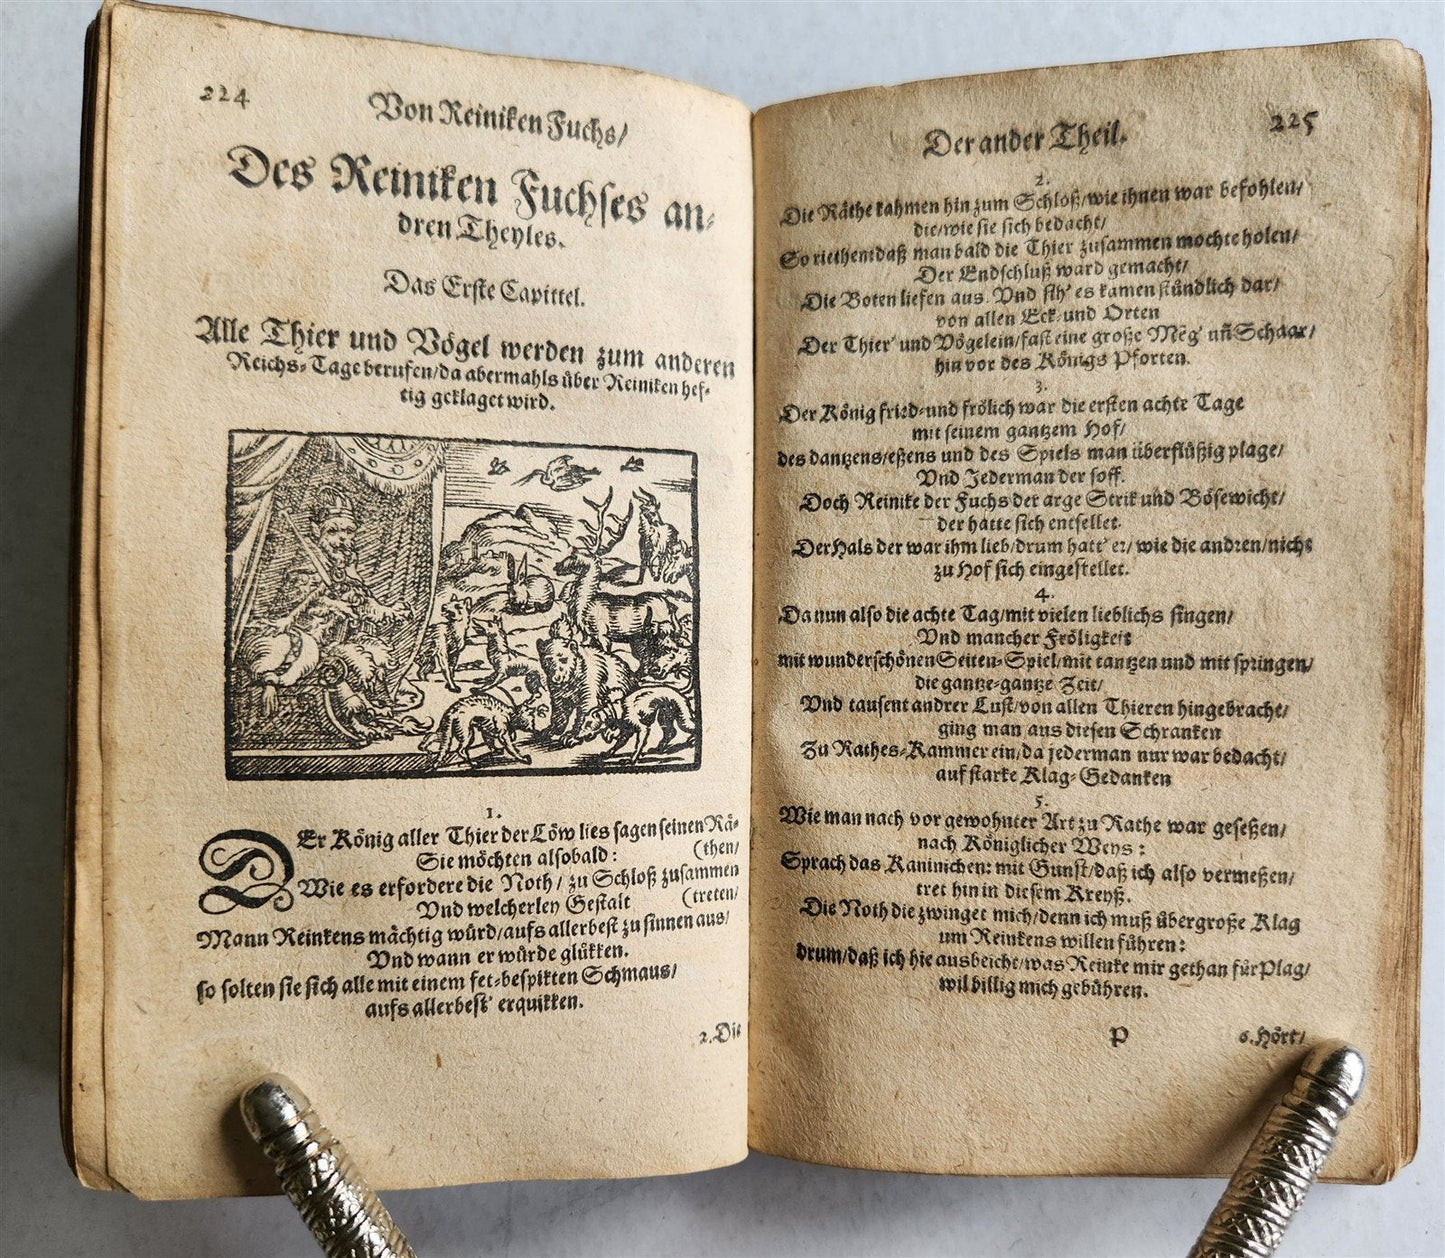 224
Von Reiniken Fuchs/
Des Reiniken Fuchses an-
dren Theyles.
Das Erste Capittel.
Alle Thier und Vögel werden zum anderen
Reichs-Tage berufen/da abermahls über Reiniken hef-
tig geklaget wird.
1.
DEr König aller Thier der Löw lies sagen seinen Rä-
Sie möchten alsobald: (then/
Wie es erfordere die Noth/ zu Schloß zusammen
Vnd welcherley Gestalt (treten/
Mann Reinkens mächtig würd/aufs allerbest zu sinnen aus/
Vnd wann er würde glükken.
so solten sie sich alle mit einem fet-bespikten Schmaus/
aufs allerbest' erquikken.
2. Die
Der ander Theil.
225
2.
Die Räthe kahmen hin zum Schloß/wie ihnen war befohlen/
die/wie sie sich bedacht/
So riethen daß man bald die Thier zusammen mochte holen/
Der Endschluß ward gemacht/
Die Boten liefen aus. Vnd sih' es kamen stündlich dar/
von allen Eck-und Orten
Der Thier' und Vögelein/fast eine große Mēg' uñ Schaar/
hin vor des Königs Pforten.
3.
Der König fried-und frölich war die ersten achte Tage
mit seinem gantzem Hof/
des dantzens/eßens und des Spiels man überflüßig plage/
Vnd Jederman der soff.
Doch Reinike der Fuchs der arge Strik und Bösewicht/
der hatte sich entsellet.
Der Hals der war ihm lieb/drum hatt' er/wie die andren/nicht
zu Hof sich eingestellet.
4.
Da nun also die achte Tag/mit vielen lieblichs singen/
Vnd mancher Fröligkeit
mit wunderschönen Seiten-Spiel/mit tantzen und mit springen/
die gantze-gantze Zeit/
Vnd tausent andrer Lust/von allen Thieren hingebracht/
ging man aus diesen Schranken
Zu Rathes-Kammer ein/da jederman nur war bedacht/
auf starke Klag-Gedanken
5.
Wie man nach vor gewohnter Art zu Rathe war geseßen/
nach Königlicher Weys:
Sprach das Kaninichen: mit Gunst/daß ich also vermeßen/
tret hin in diesem Kreyß.
Die Noth die zwinget mich/denn ich muß übergroße Klag
um Reinkens willen führen:
drum/daß ich hie ausbeicht/was Reinke mir gethan für Plag/
wil billig mich gebühren.
P
6. Hört/